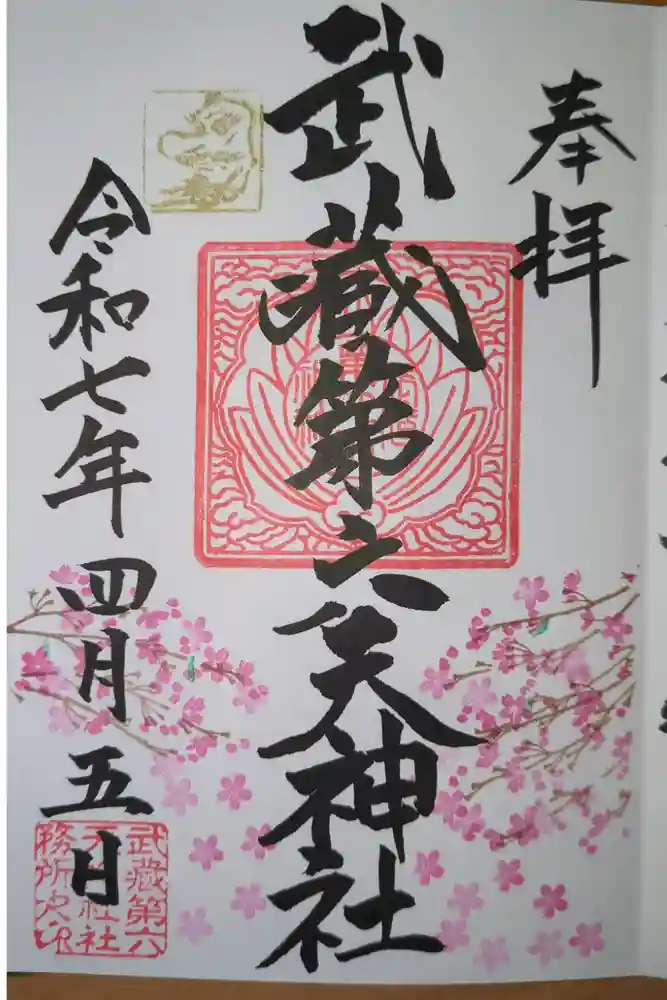 奉拝
武蔵第六天神社
令和七年四月五日
武蔵第六
天神社社
務所之印